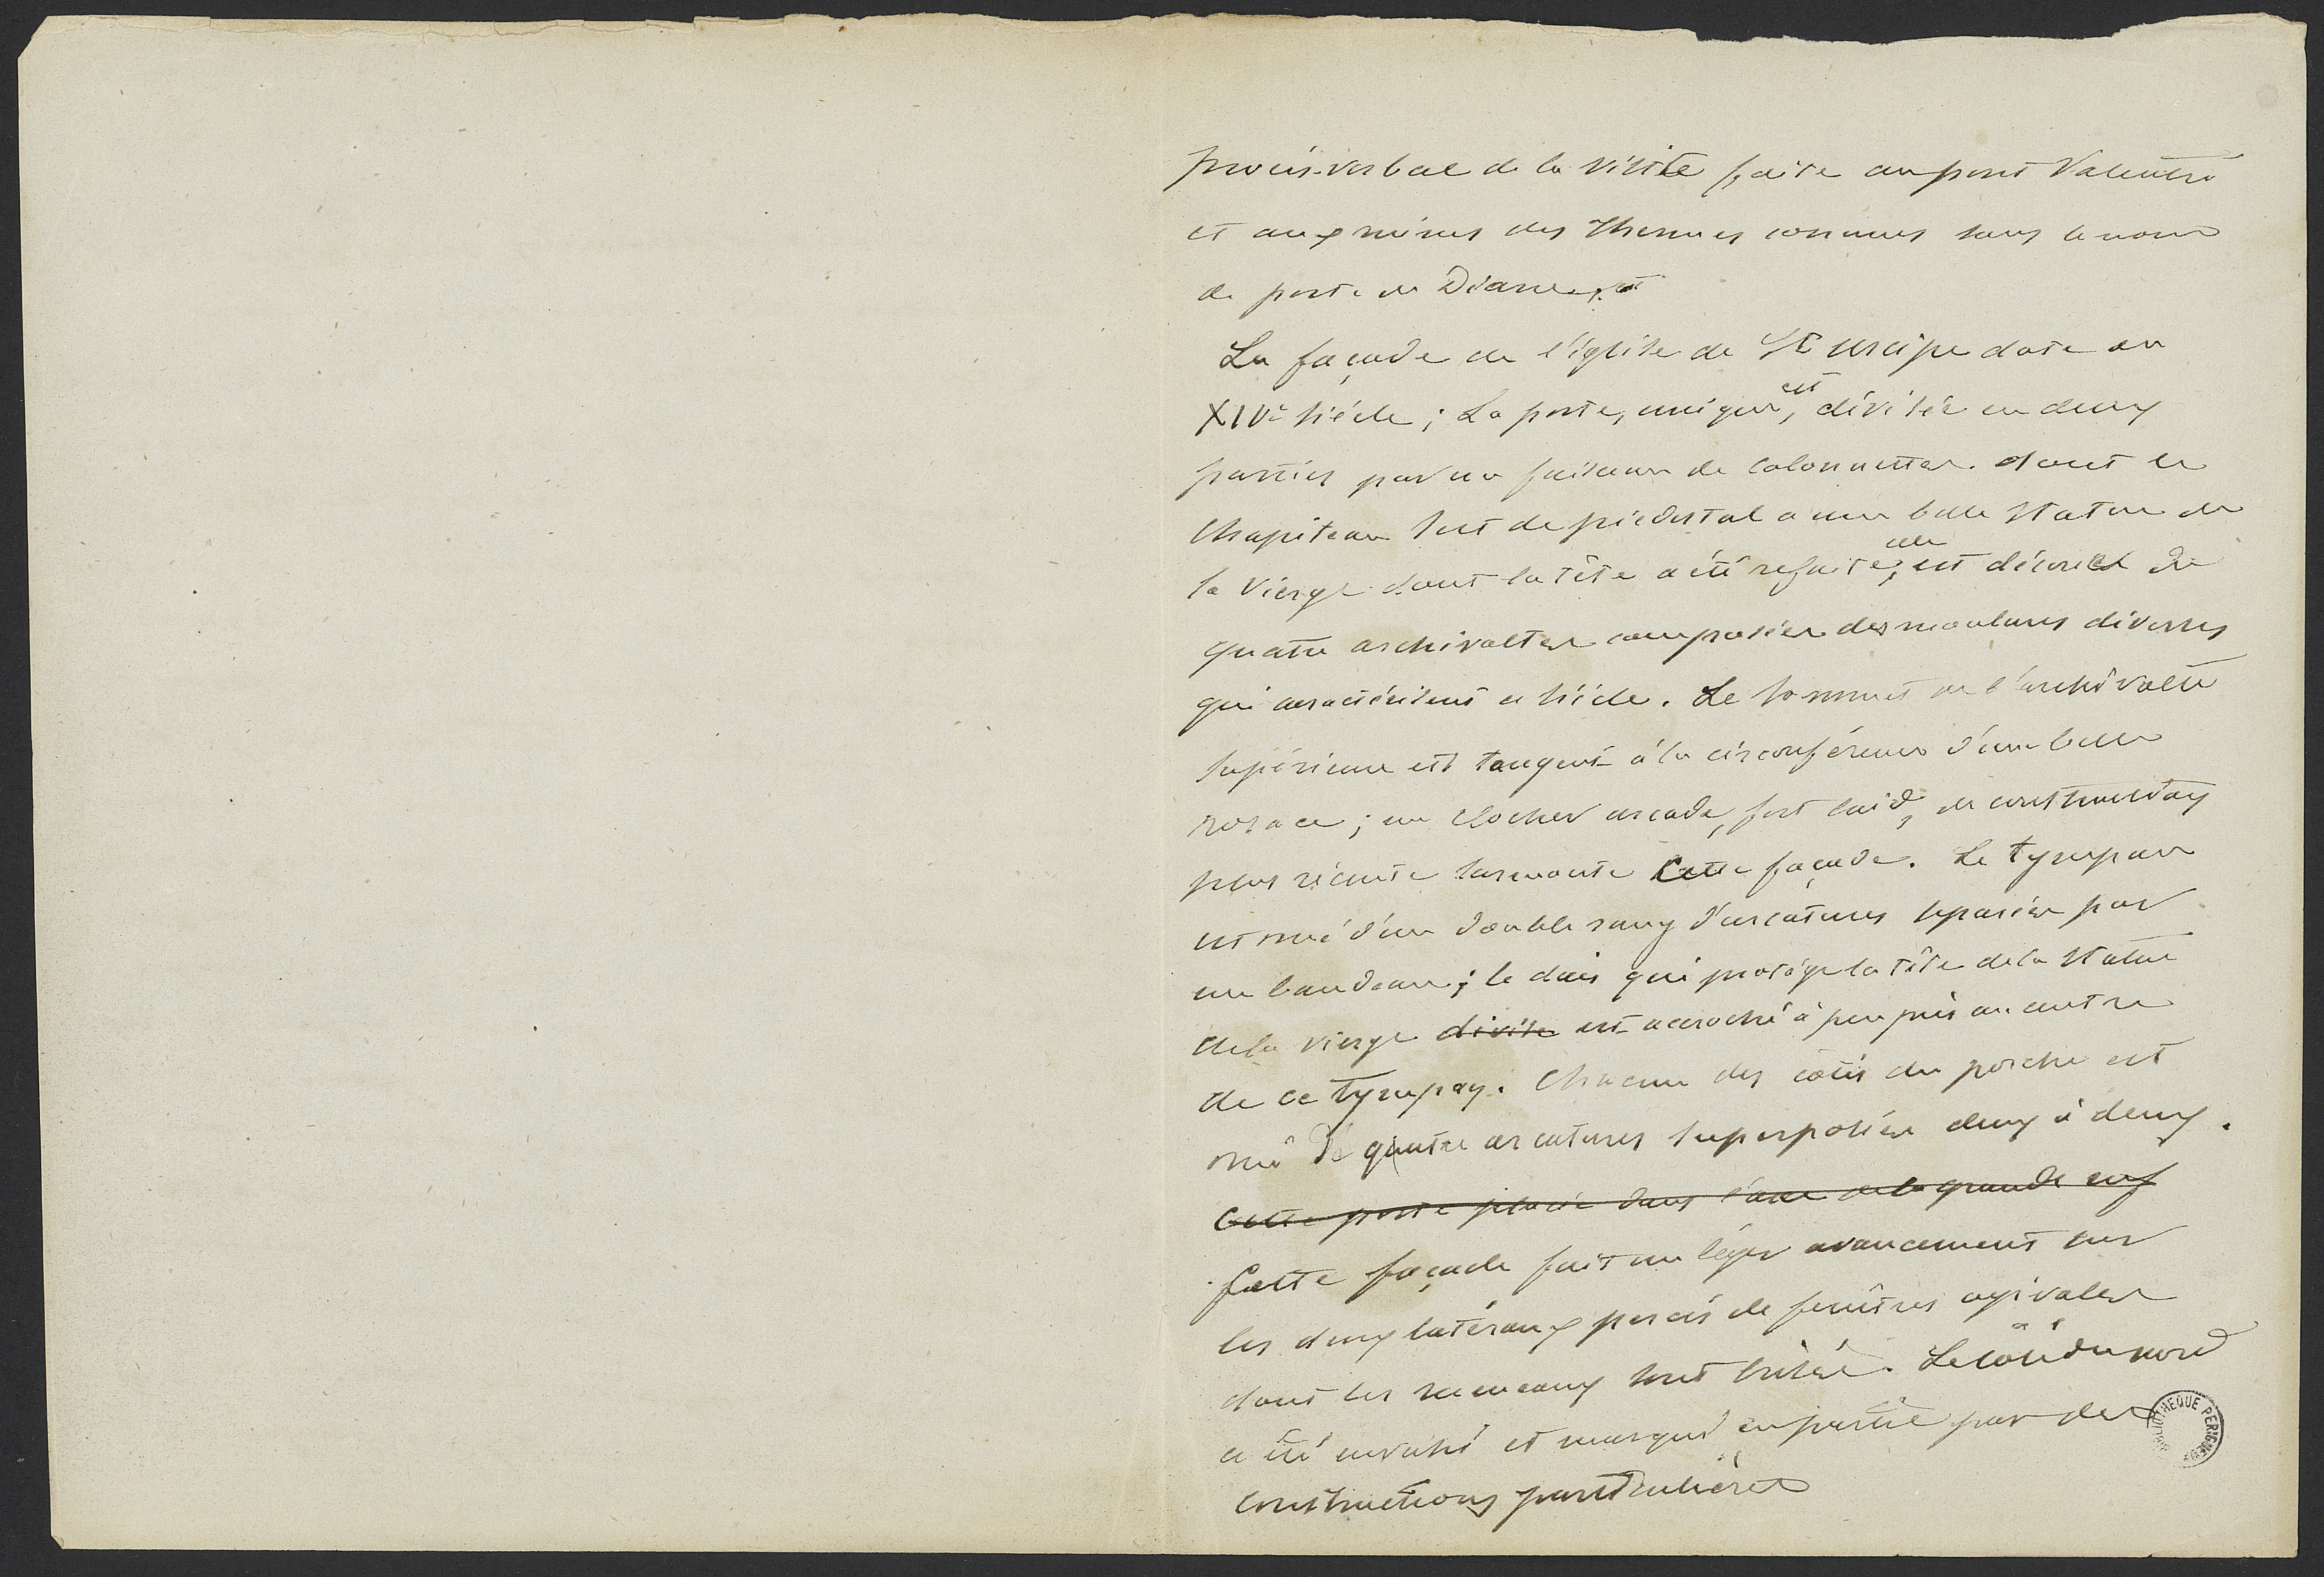 procès-verbal de la visite faite au pont Valentré
et aux ruines des Thermes connues sous le nom
de porte de Diane.
La façade de l'église de St Urcipe date du
XIVe siècle ; La porte, unique, est divisée en deux
parties par un faisceau de colonnettes dont le
chapiteau sert de piédestal a une belle statue de
la Vierge dont la tête a été refaite, elle est décorée de
quatre archivoltes composées des moulures diverses
qui caractérisent ce siècle. Le sommet de l'archivolte
supérieure est tangent à la circonférence d'une belle
rosace ; un clocher arcade, fort laid, de construction
plus récente surmonte cette façade. Le tympan
est orné d'un double rang d'arcatures separées par
un bandeau ; le dais qui protége la tête de la statue
de la vierge divise est accroché à peu près au centre
de ce tympan. Chacun des cotés du porche est
orné de quatre arcatures superposées deux à deux.
Cette porte placée dans l'axe de la grande nef
Cette façade fait un léger avancement sur
les deux latéraux percés de fenêtres ogivales
dont les meneaux sont brisés. Le côté du nord
a été envahi et masqué en partie par des
constructions particulières